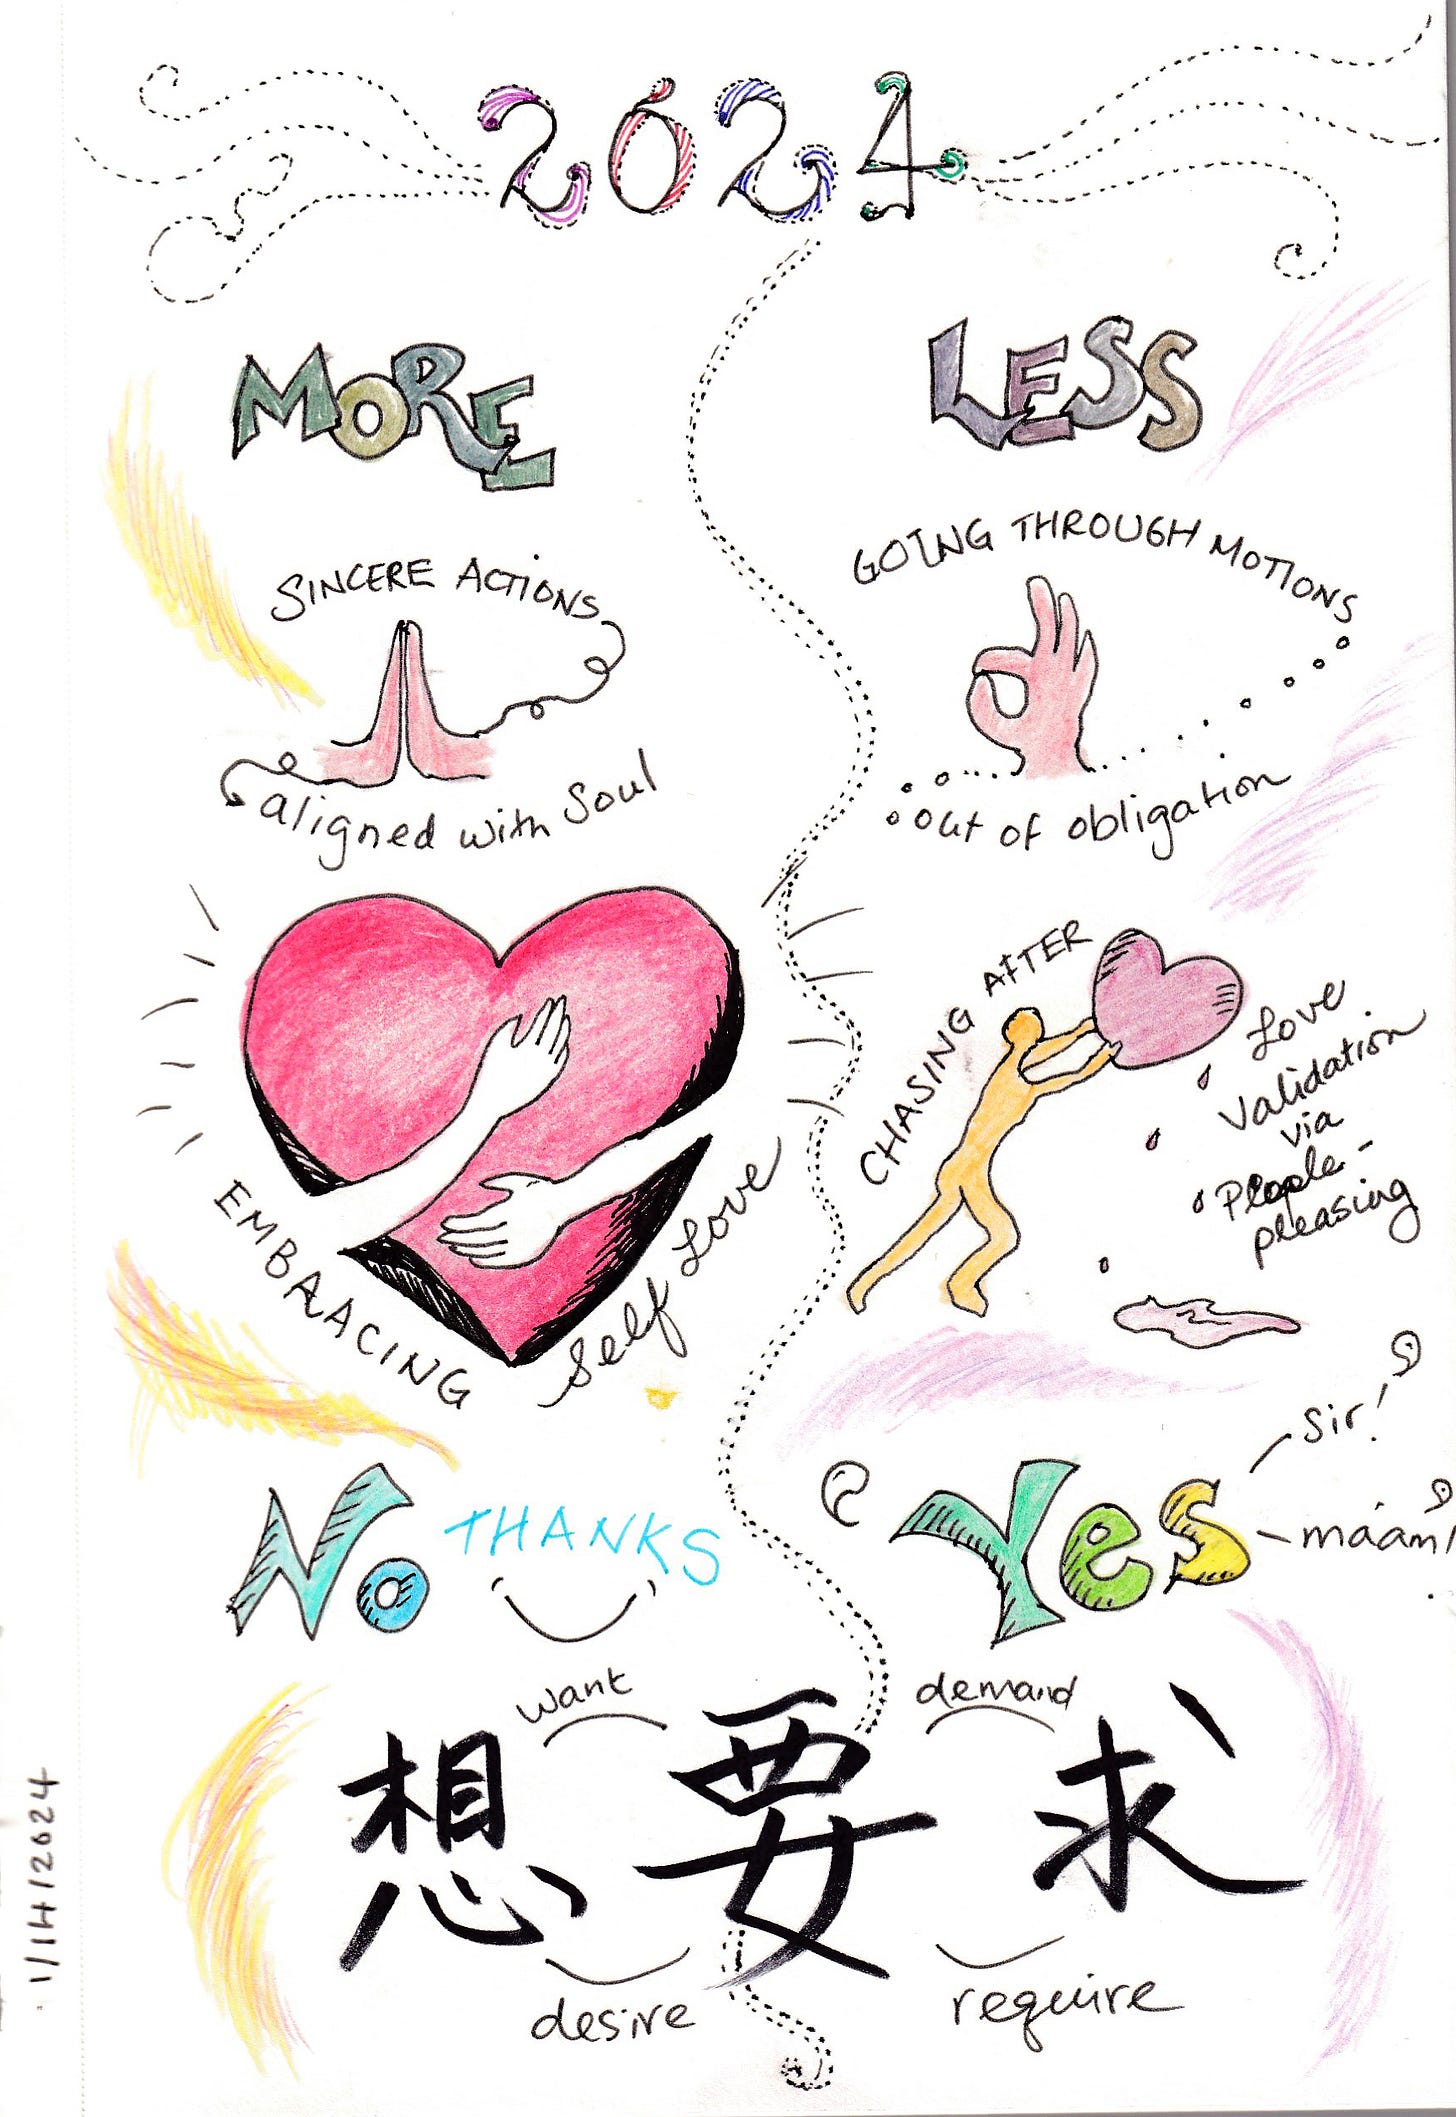 2024
MORE
LESS
SINCERE ACTIONS
aligned with Soul
GOING THROUGH MOTIONS
out of obligation
EMBRACING
Self Love
CHASING AFTER
Love
Validation
via
People-
pleasing
No THANKS
Yes
Sir!
máam!
want
demand
想要求
desire
require
1/14/2024